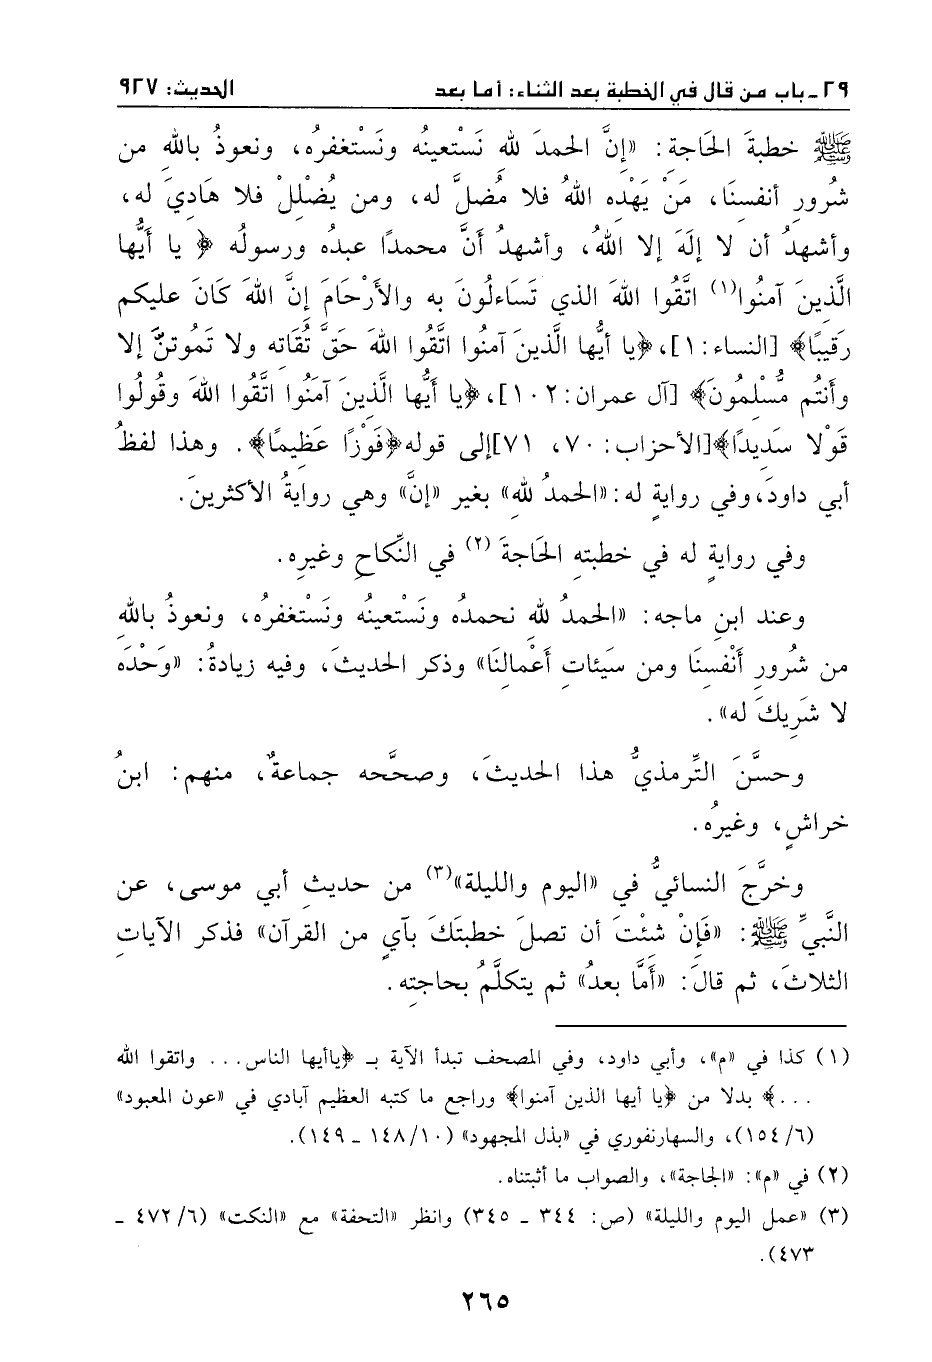 ٢٩ـ باب من قال في الخطبة بعد الثناء: أما بعد الحديث: ٩٢٧
ﷺ خطبةَ الحَاجةِ: «إنَّ الحمدَ للهِ نَسْتعينُه ونَسْتغفرُه، ونعوذُ باللهِ من
شُرورِ أنفسِنَا، مَنْ يَهْدِه اللهُ فلا مُضلَّ له، ومن يُضْلِلْ فلا هَادِيَ له،
وأشهدُ أن لا إلَهَ إلا اللهُ، وأشهدُ أنَّ محمدًا عبدُه ورسولُه ﴿ يا أَيُّها
الَّذينَ آمنُوا(١) اتَّقُوا اللهَ الذي تَسَاءلُونَ به والأرْحَامَ إنَّ اللهَ كَانَ عليكم
رَقيبًا﴾ [النساء: ١]، ﴿يا أيُّها الَّذينَ آمنُوا اتَّقُوا اللهَ حَقَّ تُقَاتِه ولا تَموتنَّ إلا
وأنتُم مُّسْلمُونَ﴾ [آل عمران: ١٠٢]، ﴿يا أَيُّها الَّذينَ آمَنُوا اتَّقُوا اللهَ وقُولُوا
قَوْلا سَديدًا﴾[الأحزاب: ٧٠، ٧١]إلى قوله﴿فَوْزًا عَظيمًا﴾. وهذا لفظُ
أبي داودَ، وفي روايةٍ له: «الحمدُ للهِ» بغير «إنَّ» وهي روايةُ الأكثرينَ.
وفي روايةٍ له في خطبتهِ الحَاجةَ (٢) في النِّكاحِ وغيرِه.
وعند ابنِ ماجه: «الحمدُ للهِ نحمدُه ونَسْتعينُه ونَسْتغفرُه، ونعوذُ باللهِ
من شُرورِ أَنْفسِنَا ومن سَيئاتِ أَعْمالنَا» وذكر الحديثَ، وفيه زيادةُ: «وَحْدَه
لا شَرِيكَ له».
وحسَّنَ التِّرمذيُّ هذا الحديثَ، وصحَّحه جماعةٌ، منهم: ابنُ
خراشٍ، وغيرُه.
وخرَّجَ النسائيُّ في «اليوم والليلة»(٣) من حديثِ أبي موسى، عن
النَّبيِّ ﷺ: «فَإنْ شئْتَ أن تصلَ خطبتَكَ بآيٍ من القرآن» فذكر الآياتِ
الثلاثَ، ثم قالَ: «أَمَّا بعدُ» ثم يتكلَّمُ بحاجتِه.
(١) كذا في «م»، وأبي داود، وفي المصحف تبدأ الآية بـ ﴿ياأيها الناس... واتقوا الله
...﴾ بدلا من ﴿يا أيها الذين آمنوا﴾ وراجع ما كتبه العظيم آبادي في «عون المعبود»
(٦/ ١٥٤)، والسهارنفوري في «بذل المجهود» (١٠/ ١٤٨ ـ ١٤٩).
(٢) في «م»: «الجاجة»، والصواب ما أثبتناه.
(٣) «عمل اليوم والليلة» (ص: ٣٤٤ ـ ٣٤٥) وانظر «التحفة» مع «النكت» (٦/ ٤٧٢ ـ
٤٧٣).
٢٦٥